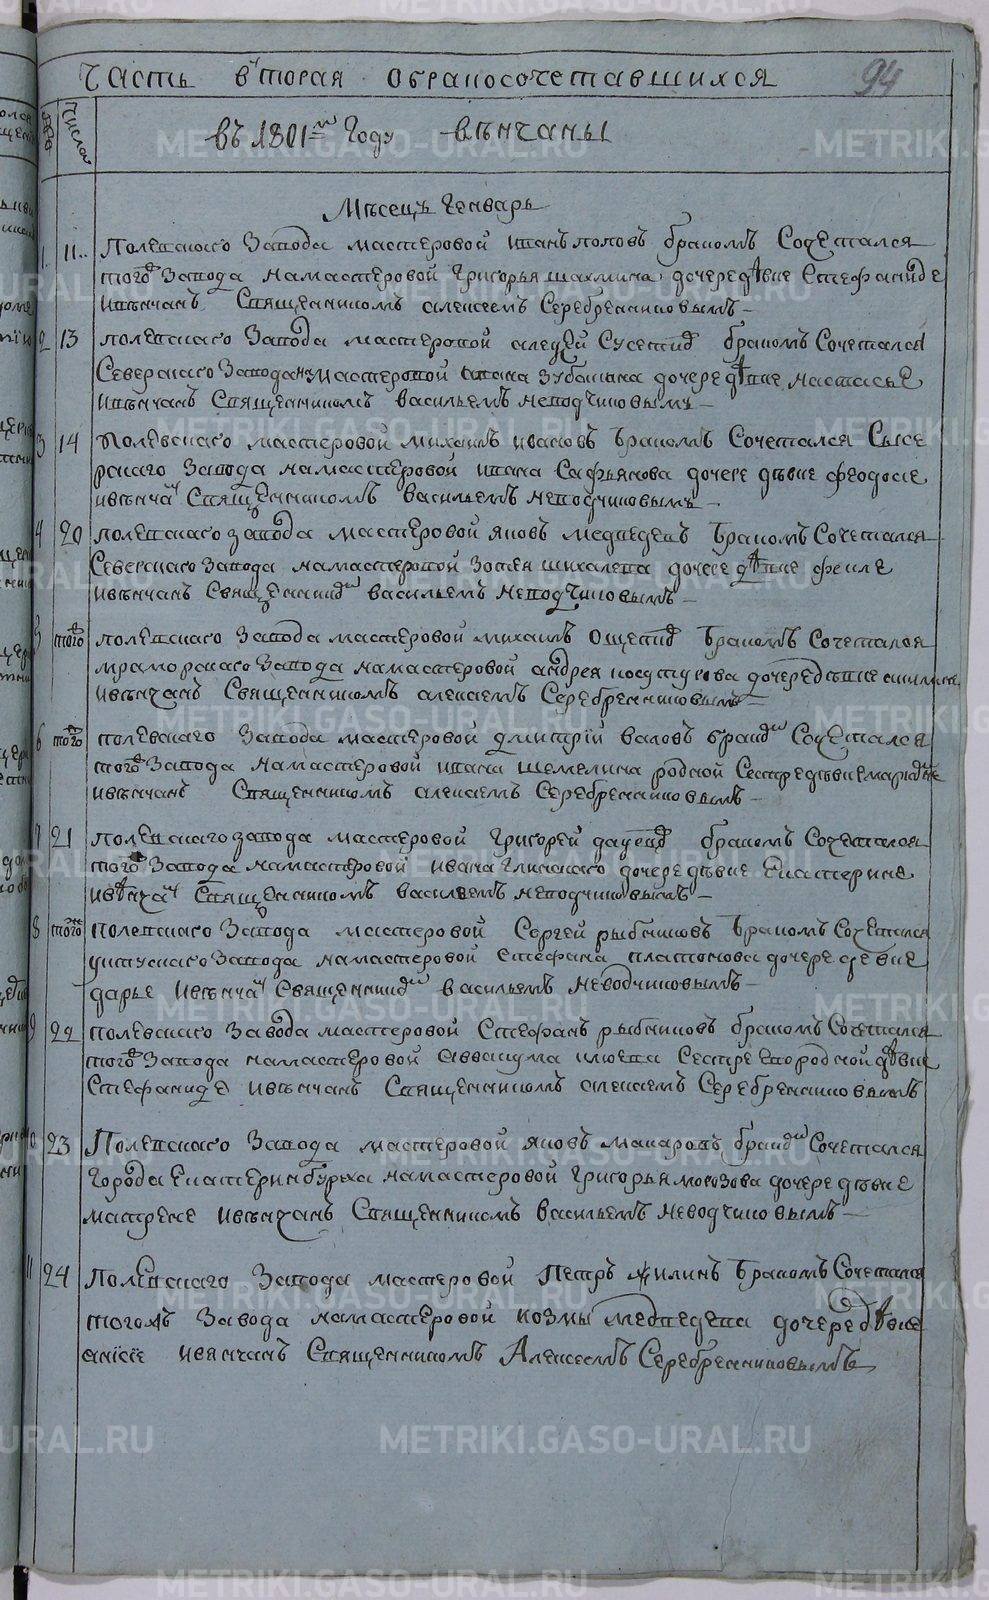 Часть вторая обраносочетавшихся
94
Число
въ 1801м Году вѣнчаны
Мѣсецъ Генварь
1 11 Полевскаго Завода мастеровой Иванъ поповъ бракомъ Сочетался
того Завода намастеровой Григорья шахмина дочере дѣвке Стефаниде
ивѣнчанъ Священникомъ алексеемъ Серебренниковымъ
2 13 полевскаго Завода мастеровой аледѣй браномъ Сочетался
Северскаго Завода намастеровой ивана Зубакина дочере дѣвке, настасье
ивѣнчанъ Священникомъ васильемъ неводчиковымъ
3 14 Полевскаго мастеровой михаилъ ивановъ браномъ Сочетался Сысе
рскаго Завода намастеровой ивана Сафьянова дочере дѣвке феодосье
ивѣнчан Священникомъ васильемъ неводчиковымъ
4 20 полевскаго завода мастеровой яковъ медведевъ браномъ Сочетался
Северскаго Завода намастеровой дочере дѣвке фекле
ивѣнчанъ Священник васильемъ неводчиковымъ
5 того полевскаго Завода мастеровой михаилъ браномъ Сочетался
мраморскаго Завода намастеровой андрея дочере дѣвке
ивѣнчанъ Священникомъ алексеемъ Серебренниковымъ
6 того полевскаго Завода мастеровой дмитрій валовъ бракм Сочетался
того Завода намастеровой ивана шемелина родной Сестре дѣвке
ивѣнчанъ Священникомъ алексеемъ Серебренниковымъ
7 21 полевскаго завода мастеровой григорей браномъ Сочетался
того Завода намастеровой ивана глинскаго дочере дѣвке Екатерине
ивѣнчан Священникомъ васильемъ неводчиковымъ
8 того полевскаго Завода мастеровой Сергей рыбниковъ браномъ Сочетался
уктускаго Завода намастеровой Стефана платонова дочере девке
дарье ивѣнчан Священникм васильемъ неводчиковымъ
9 22 полевскаго Завода мастеровой Стефанъ рыбниковъ браномъ Сочетался
того Завода намастеровой аввакума Сестре ево родной дѣвке
Стефаниде ивѣнчанъ Священникомъ алексеемъ Серебренниковымъ
10 23 Полевскаго Завода мастеровой яковъ макаровъ бракм Сочетался
города Екатеринбурха намастеровой григорья морозова дочере дѣвке
матрене ивѣнчанъ Священникомъ васильемъ неводчиковымъ
11 24 полевскаго Завода мастеровой петръ жилинъ браномъ Сочетался
тогожъ Завода намастеровой козмы медведева дочере дѣвке
анне ивянчанъ Священникомъ Алексеемъ Серебренниковымъ
METRIKI.GASO-URAL.RU